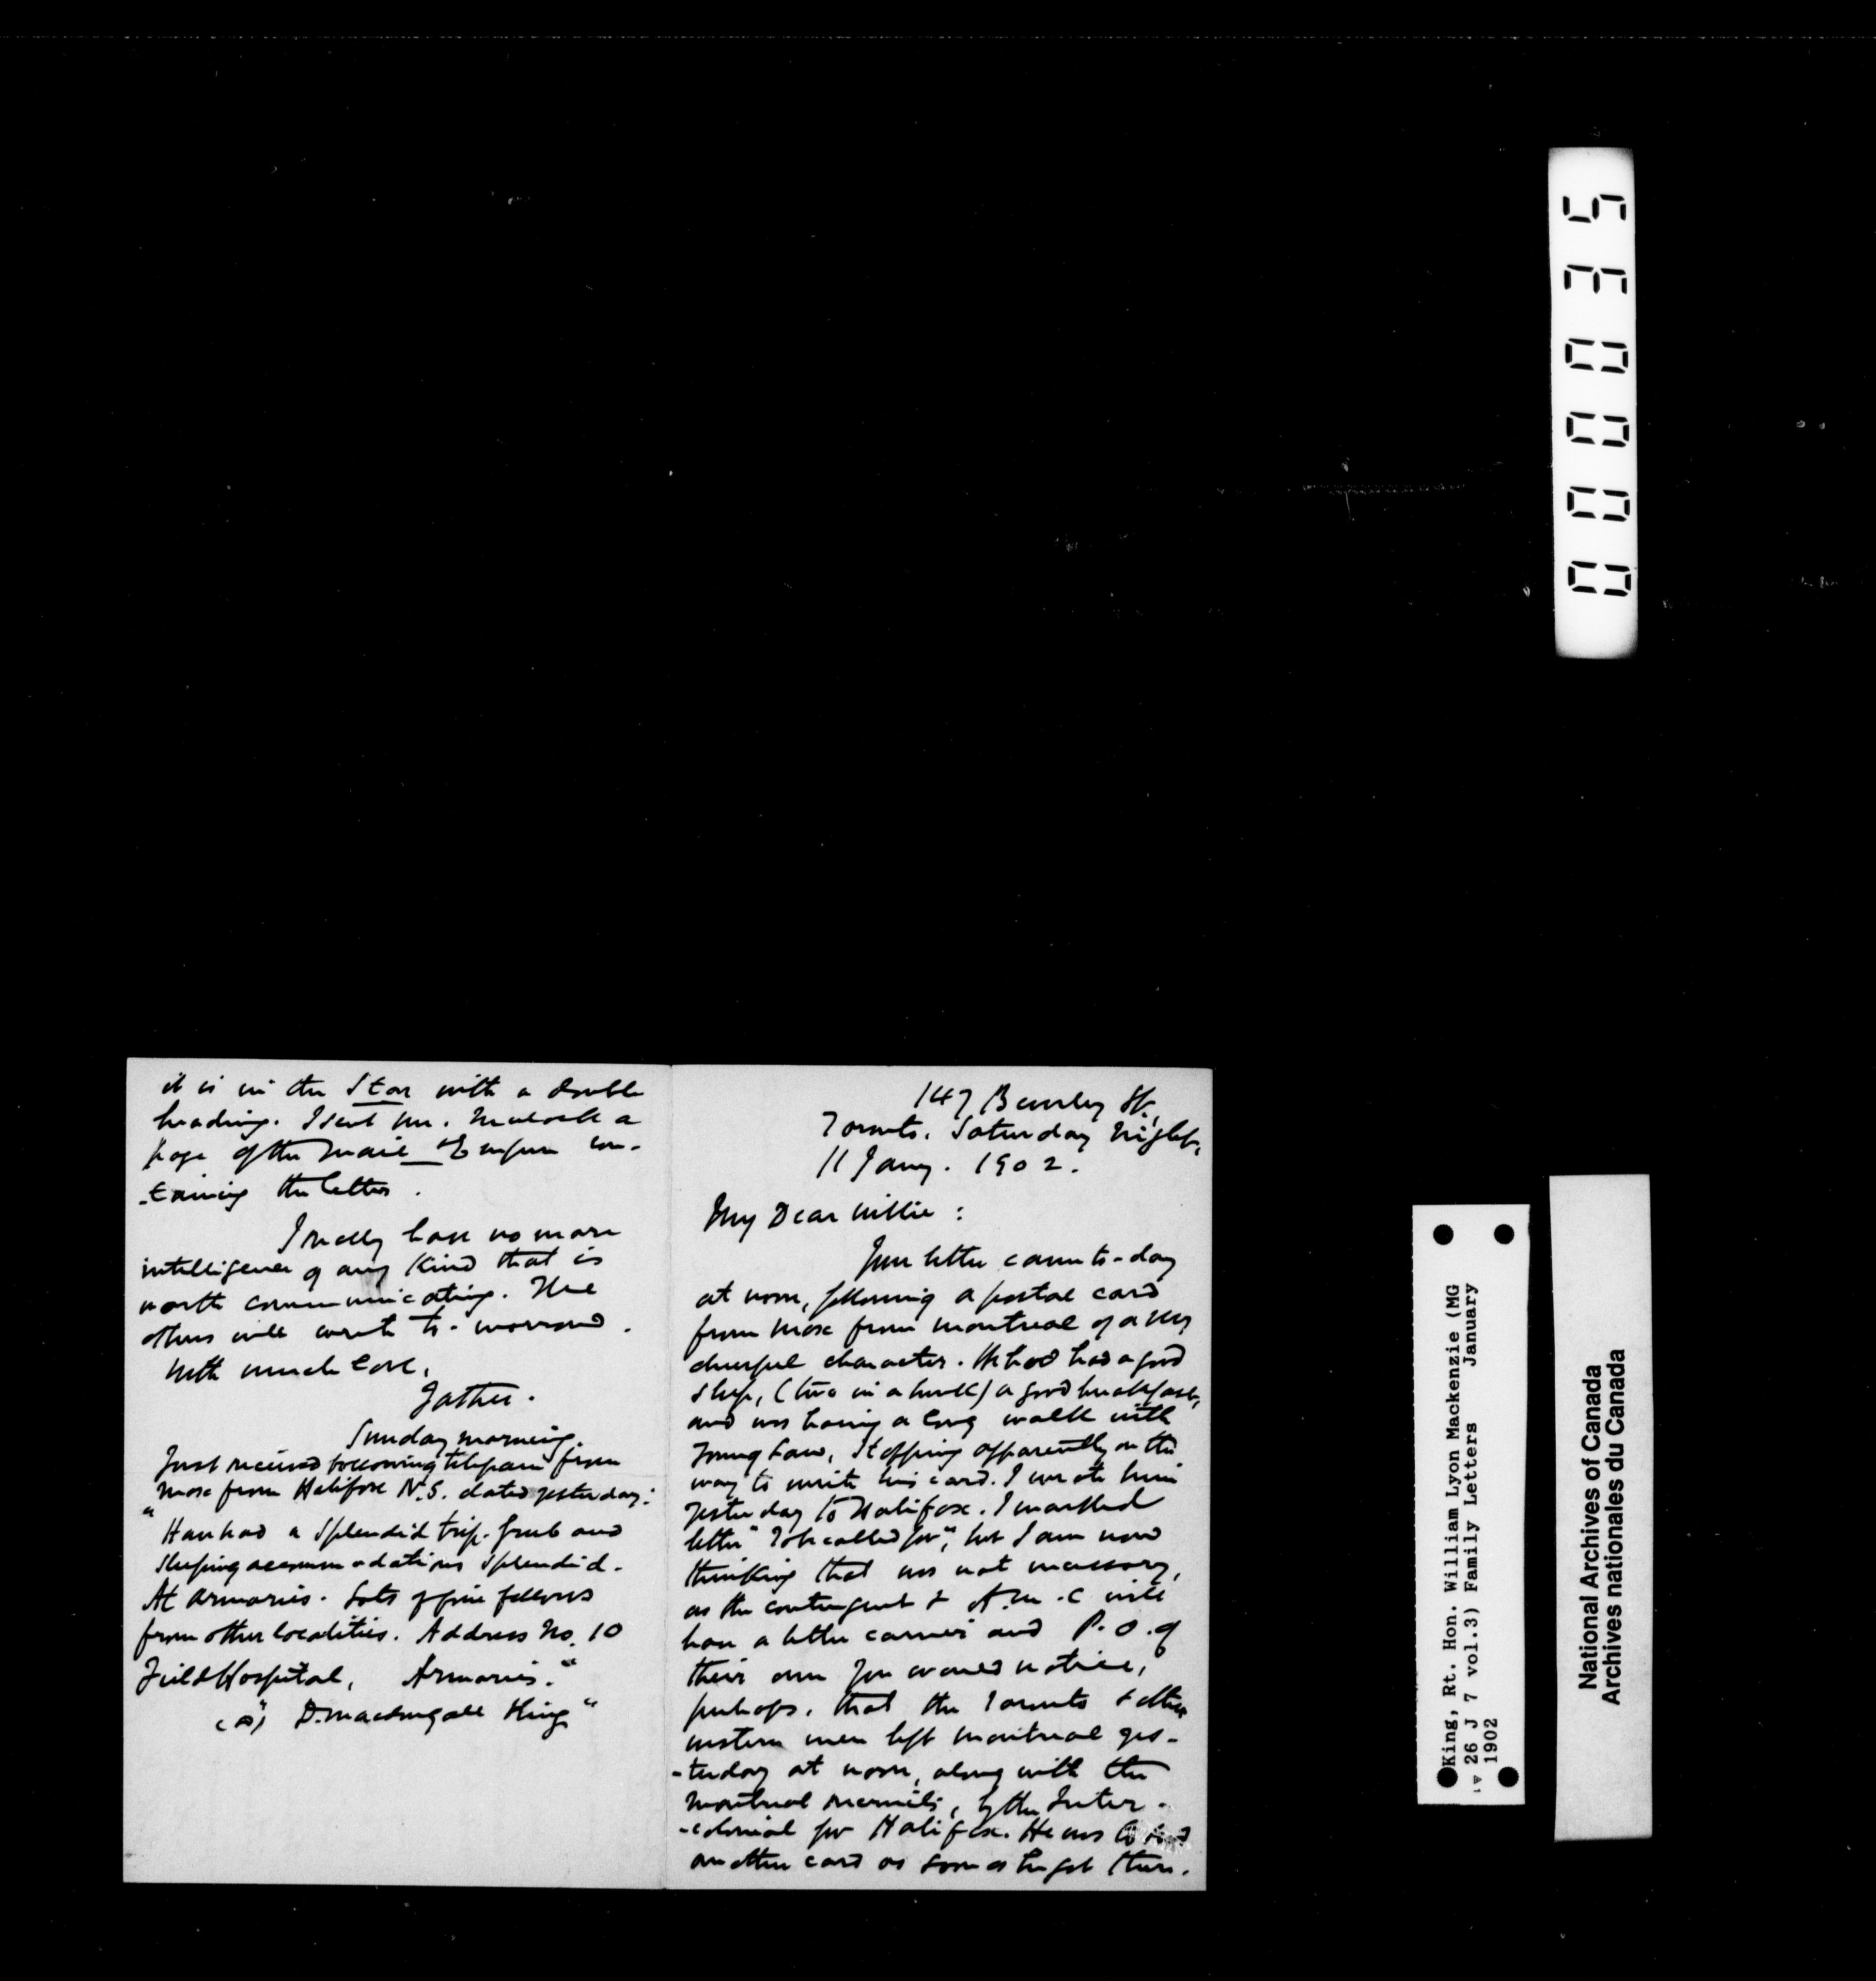 147 Beverley St.,
Toronto. Saturday Night,
11 Jany. 1902.
My Dear Willie:
Your letter came to-day
at noon, following a postal card
from Max from Montreal of a very
cheerful character. He had had a good
sleep, (two in a bunk) a good breakfast,
and was having a long walk with
young Law, stopping apparently on the
way to write his card. I wrote him
yesterday to Halifax. I marked
letter "To be called for", but I am now
thinking that was not necessary,
as the contingent & A.M.C will
have a letter carrier and P.O. of
their own. You would notice,
perhaps, that the Toronto & other
western men left Montreal yes-
-terday at noon, along with the
Montreal recruits, by the Inter-
-colonial for Halifax. He was to send
another card as soon as he got there.
it is in the Star with a double
heading. I sent Mr. Mulock a
page of the Mail & Empire con-
-taining the letter.
I really have no more
intelligence of any kind that is
worth communicating. The
others will write to-morrow.
With much love,
Father.
Sunday morning.
Just received following telegram from
Max from Halifax N.S. dated yesterday:
"Have had a splendid trip. Grub and
sleeping accommodations splendid.
At Armories. Lots of fine fellows
from other localities. Address No. 10
Field Hospital, Armories."
(s) "D. Macdougall King"
000035
King, Rt. Hon. William Lyon Mackenzie (MG
26 J 7 vol.3) Family Letters January
1902
National Archives of Canada
Archives nationales du Canada